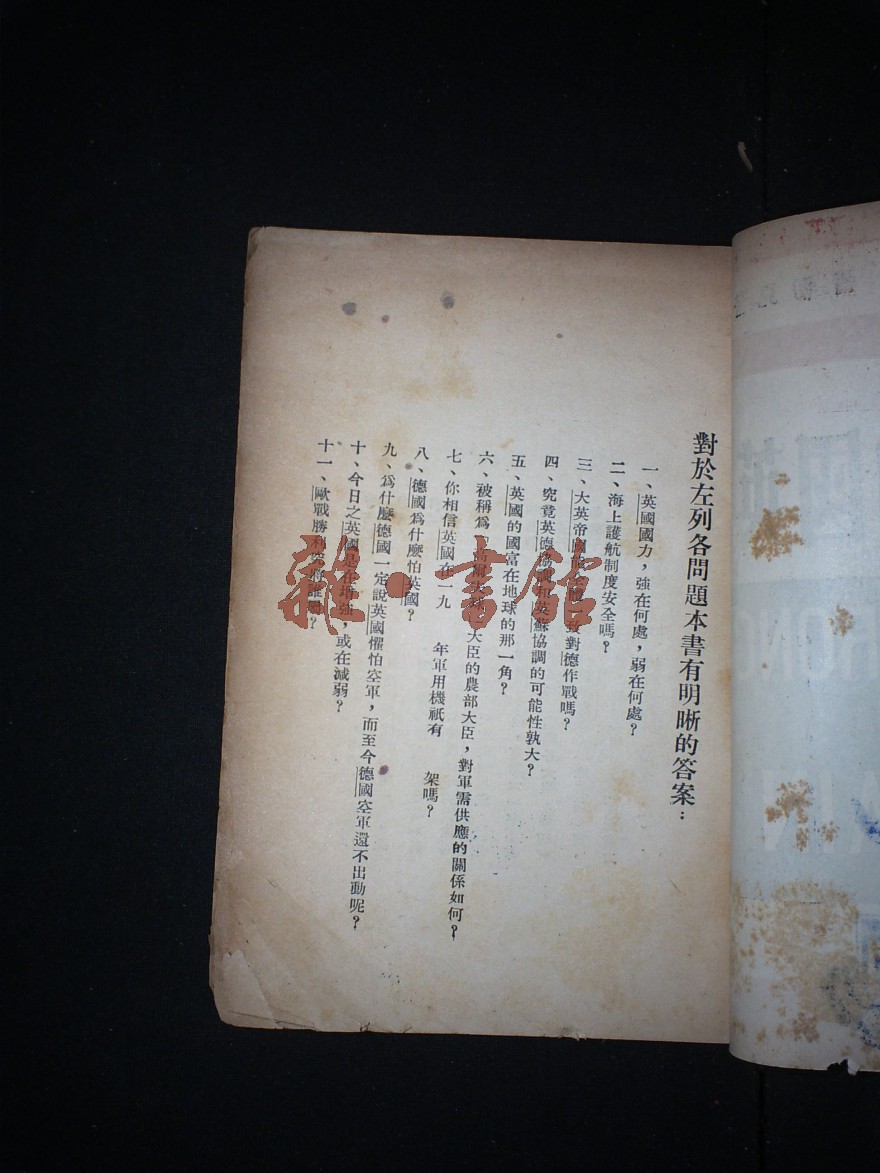 對於左列各問題本書有明晰的答案：
一、英國國力，強在何處，弱在何處？
二、海上護航制度安全嗎？
三、大英帝國 一致對德作戰嗎？
四、究竟英德協調和英蘇協調的可能性孰大？
五、英國的國富在地球的那一角？
六、被稱爲 大臣的農部大臣，對軍需供應的關係如何？
七、你相信英國在一九 年軍用機祇有 架嗎？
八、德國爲什麼怕英國？
九、爲什麼德國一定說英國懼怕空軍，而至今德國空軍還不出動呢？
十、今日之英國是在增強，或在減弱？
十一、歐戰勝利 將誰屬？
雜·書館